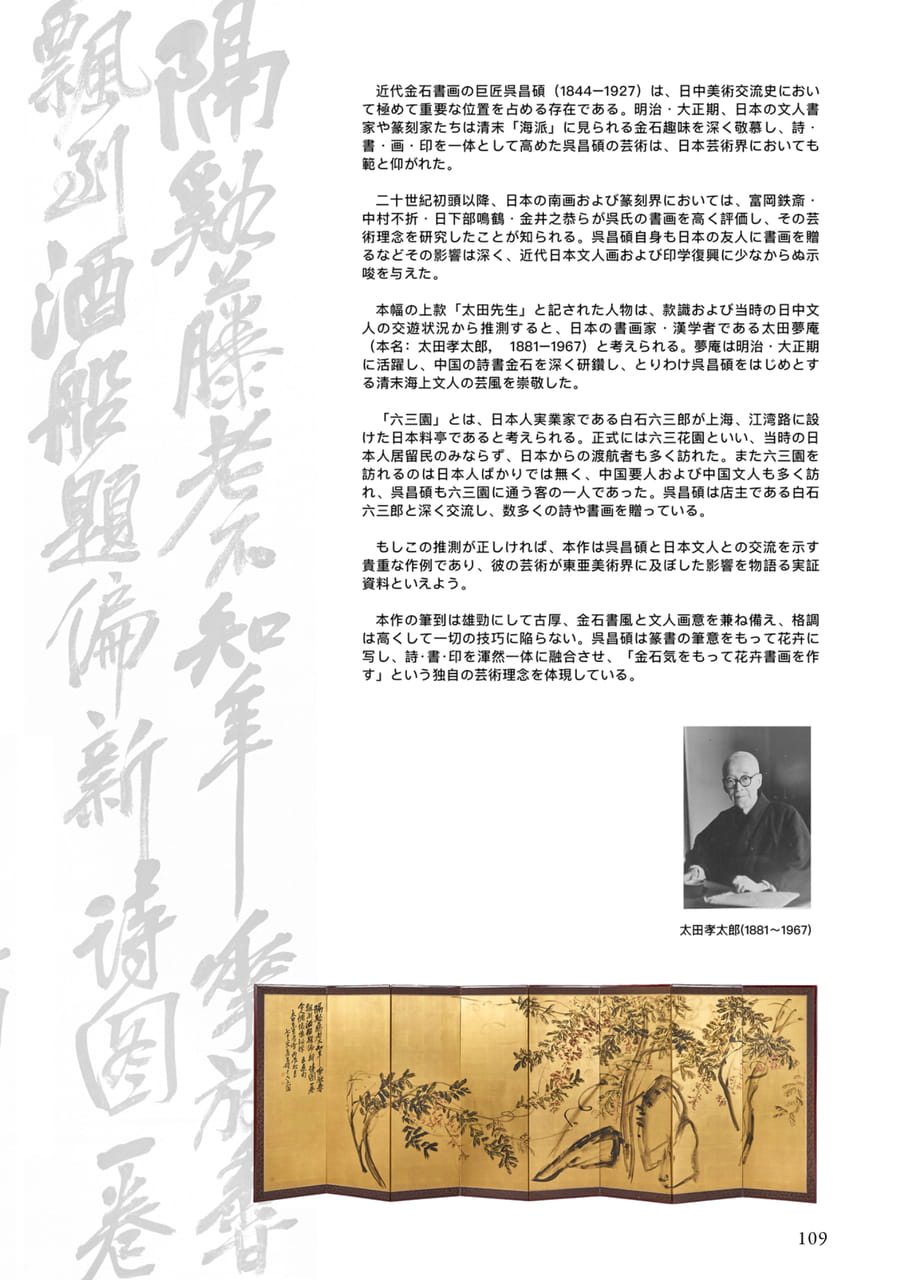 近代金石書画の巨匠呉昌碩（1844ー1927）は、日中美術交流史におい
て極めて重要な位置を占める存在である。明治・大正期、日本の文人書
家や篆刻家たちは清末「海派」に見られる金石趣味を深く敬慕し、詩・
書・画・印を一体として高めた呉昌碩の芸術は、日本芸術界においても
範と仰がれた。
二十世紀初頭以降、日本の南画および篆刻界においては、富岡鉄斎・
中村不折・日下部鳴鶴・金井之恭らが呉氏の書画を高く評価し、その芸
術理念を研究したことが知られる。呉昌碩自身も日本の友人に書画を贈
るなどその影響は深く、近代日本文人画および印学復興に少なからぬ示
唆を与えた。
本幅の上款「太田先生」と記された人物は、款識および当時の日中文
人の交遊状況から推測すると、日本の書画家・漢学者である太田夢庵
（本名：太田孝太郎， 1881ー1967）と考えられる。夢庵は明治・大正期
に活躍し、中国の詩書金石を深く研鑽し、とりわけ呉昌碩をはじめとす
る清末海上文人の芸風を崇敬した。
「六三園」とは、日本人実業家である白石六三郎が上海、江湾路に設
けた日本料亭であると考えられる。正式には六三花園といい、当時の日
本人居留民のみならず、日本からの渡航者も多く訪れた。また六三園を
訪れるのは日本人ばかりでは無く、中国要人および中国文人も多く訪
れ、呉昌碩も六三園に通う客の一人であった。呉昌碩は店主である白石
六三郎と深く交流し、数多くの詩や書画を贈っている。
もしこの推測が正しければ、本作は呉昌碩と日本文人との交流を示す
貴重な作例であり、彼の芸術が東亜美術界に及ぼした影響を物語る実証
資料といえよう。
本作の筆到は雄勁にして古厚、金石書風と文人画意を兼ね備え、格調
は高くして一切の技巧に陥らない。呉昌碩は篆書の筆意をもって花卉に
写し、詩･書･印を渾然一体に融合させ、「金石気をもって花卉書画を作
す」という独自の芸術理念を体現している。
隔谿藤老不知年 乘放尋
飄到酒船題偏新詩図一巻
太田孝太郎(1881～1967)
109